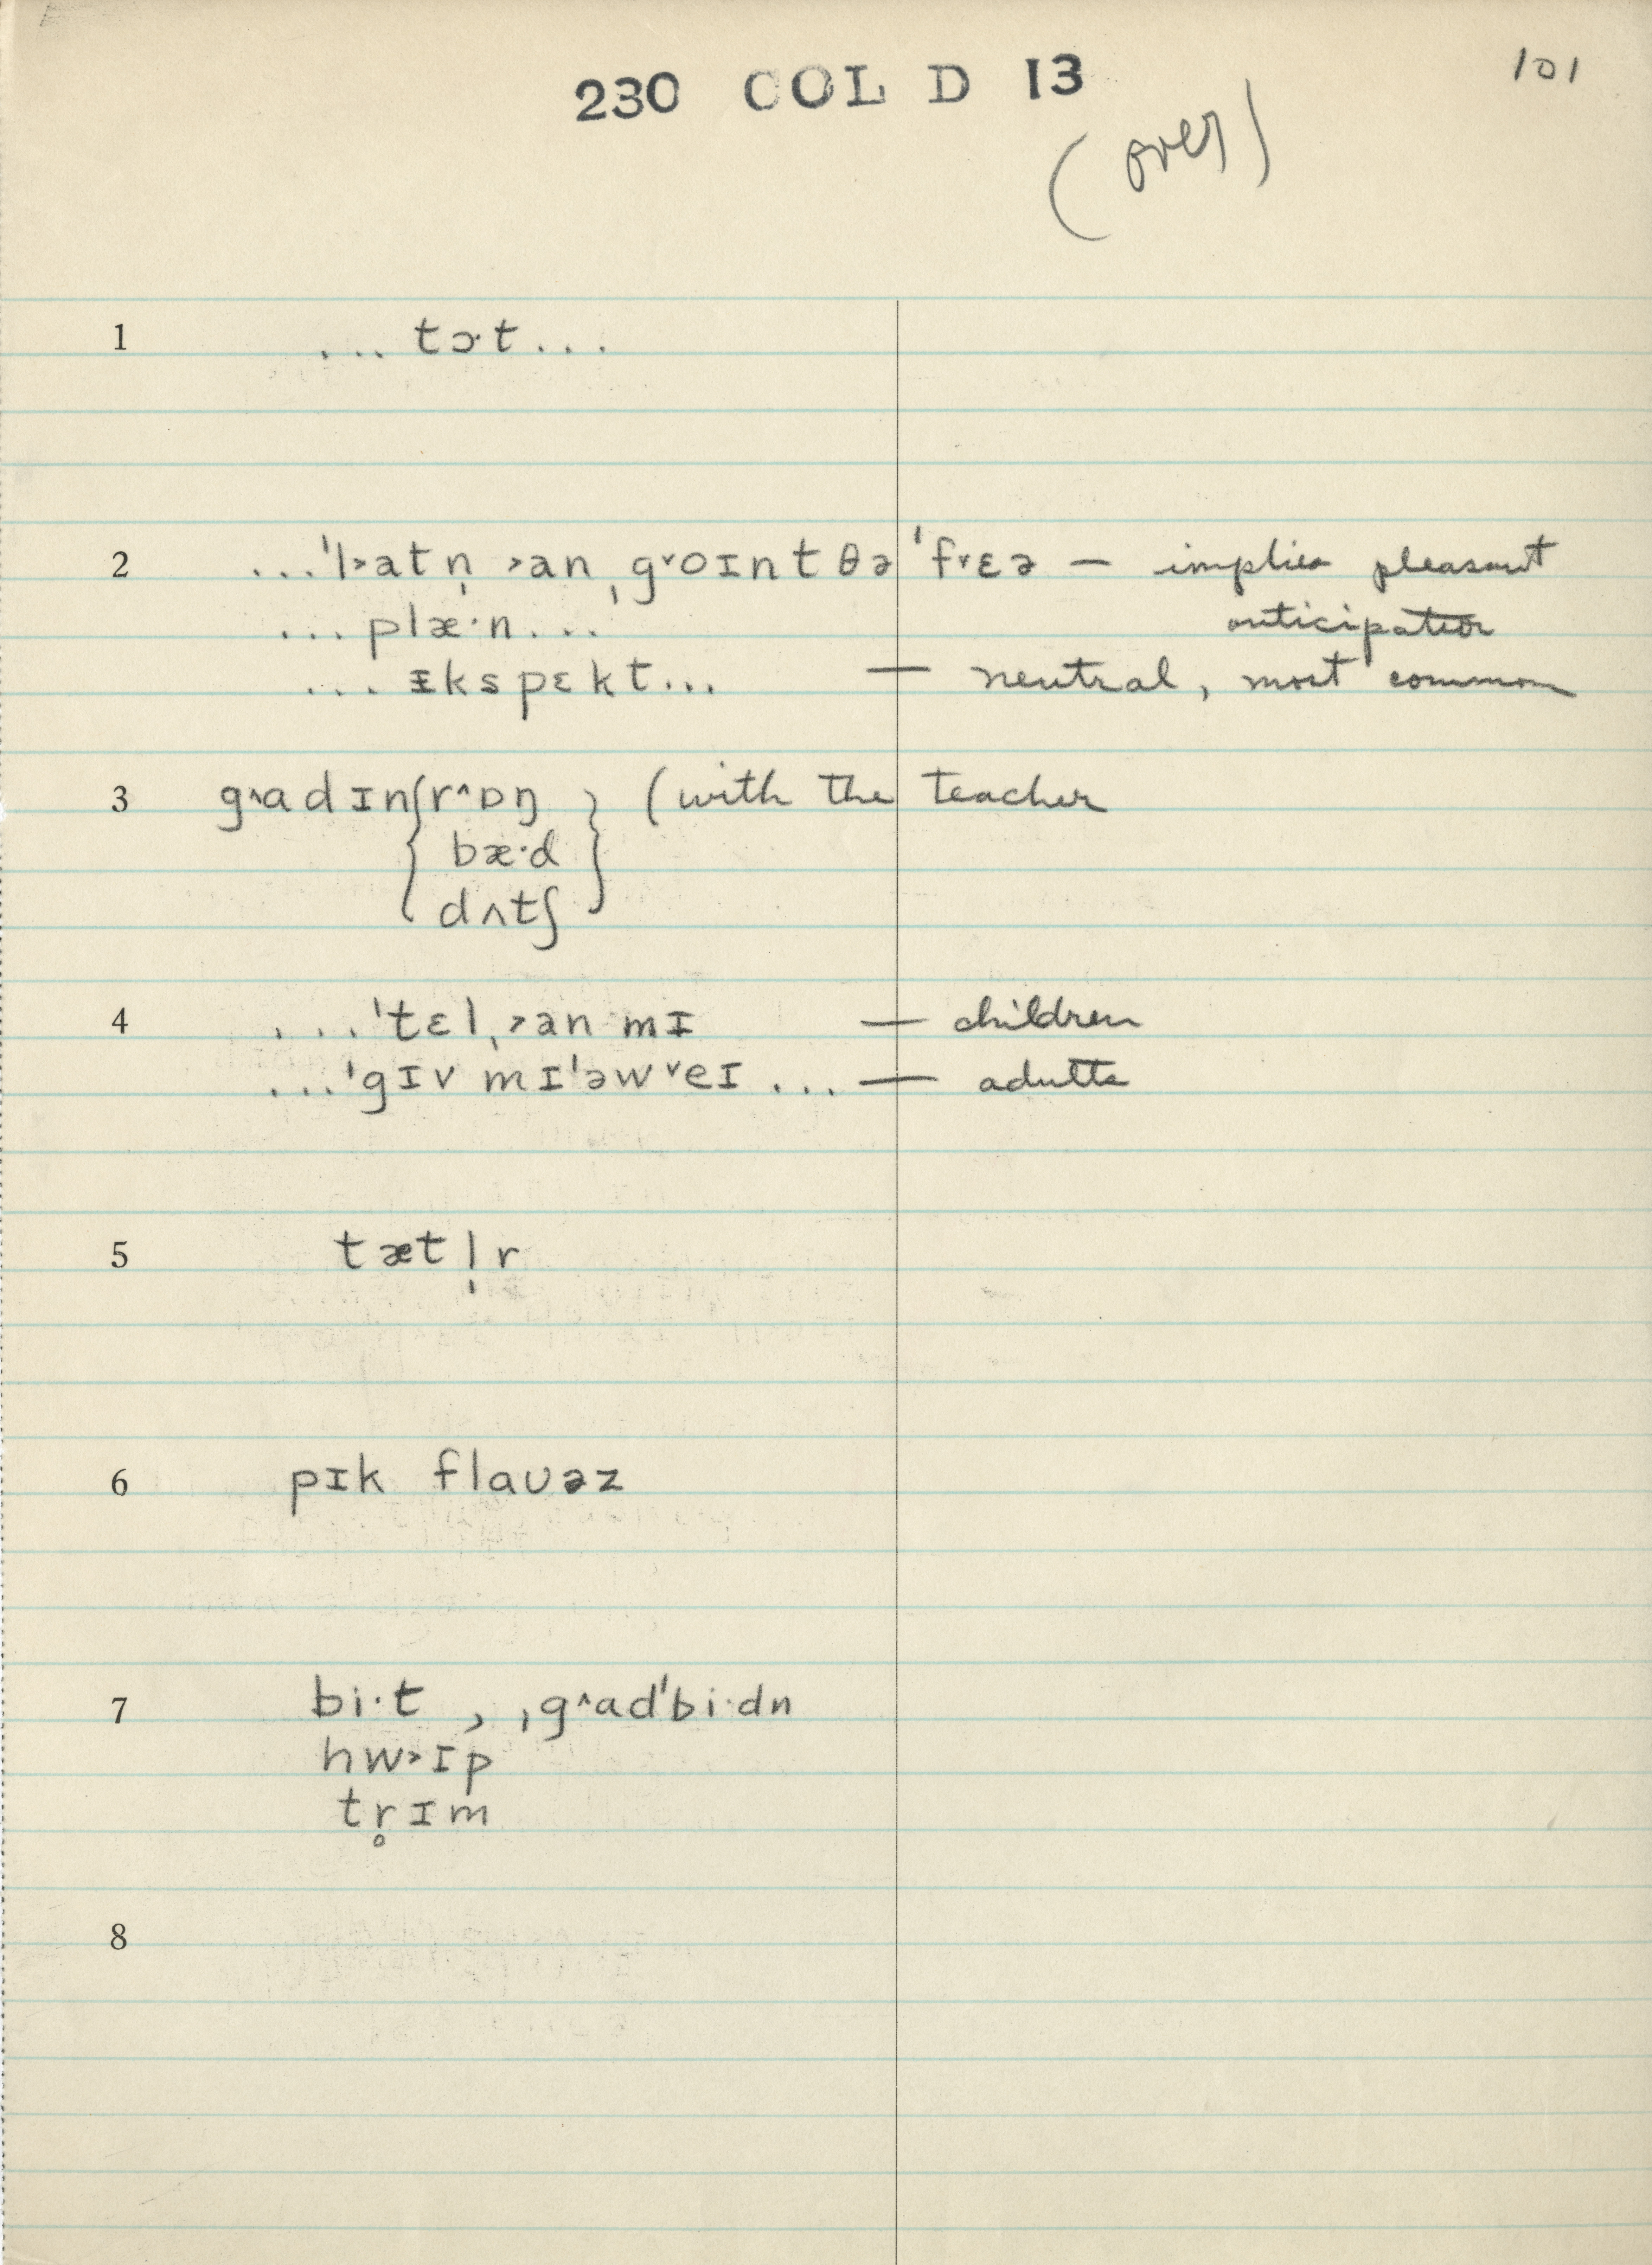 101
230 COL D 13
(over)
1 ... tɔ·t...
2 ...ˈl˃atn̩ ˃anˌg˅oɪnt θə ˈf˅ɛə — implies pleasant
... plæ·n... anticipation
... ᵻkspɛkt... — neutral, most common
3 g^adɪn { r^ɒŋ } (with the teacher
bæ·d
dʌtʃ
4 ...ˈtɛlˌ˃an mɪ — children
...ˈgɪv mɪˈəw˅eɪ ... — adults
5 tætl̩r
6 pɪk flaʊəz
7 bi·t , ˌg^adˈbi·dn
hw˃ɪp
tr̥ɪm
8